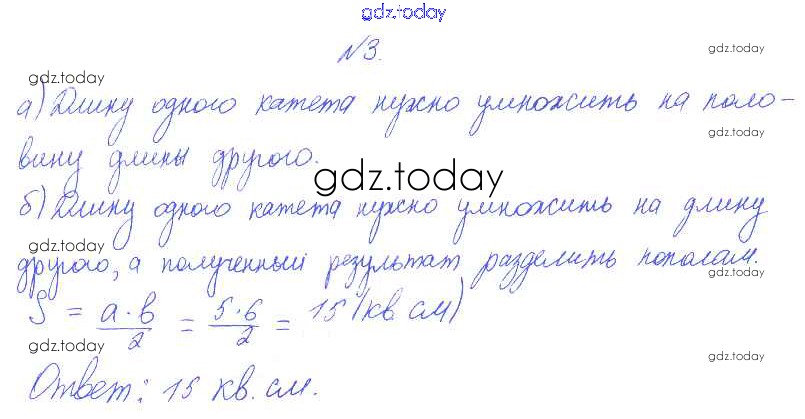 gdz.today
№3.
gdz.today
gdz.today
а) Длину одного катета нужно умножить на поло-
gdz.today
вину длины другого.
gdz.today
б) Длину одного катета нужно умножить на длину
gdz.today
другого, а полученный результат разделить пополам.
gdz.today
S = a·b/2 = 5·6/2 = 15 (кв. см)
gdz.today
gdz.today
Ответ: 15 кв. см.